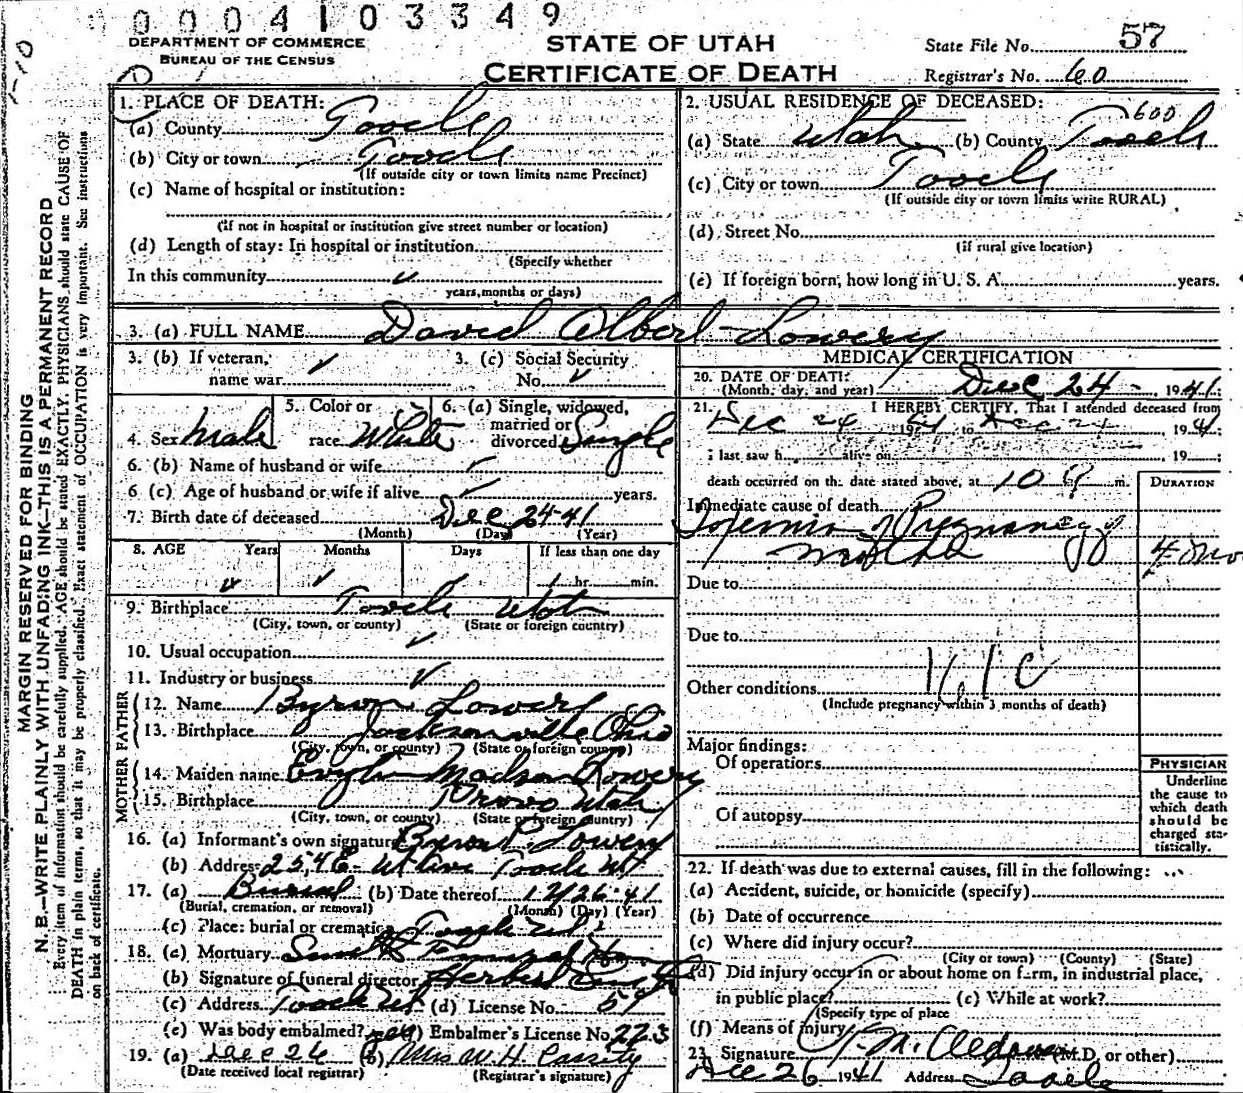 0004103349
DEPARTMENT OF COMMERCE
BUREAU OF THE CENSUS
STATE OF UTAH
CERTIFICATE OF DEATH
State File No. 57
Registrar's No. 60
MARGIN RESERVED FOR BINDING
N. B.—WRITE PLAINLY WITH UNFADING INK—THIS IS A PERMANENT RECORD
Every item of information should be carefully supplied. AGE should be stated EXACTLY. PHYSICIANS should state CAUSE OF
DEATH in plain terms, so that it may be properly classified. Exact statement of OCCUPATION is very important. See instructions
on back of certificate.
1. PLACE OF DEATH:
(a) County Tooele
(b) City or town Tooele
(If outside city or town limits name Precinct)
(c) Name of hospital or institution:
(If not in hospital or institution give street number or location)
(d) Length of stay: In hospital or institution
(Specify whether
In this community ✓
years, months or days)
2. USUAL RESIDENCE OF DECEASED:
600
(a) State Utah (b) County Tooele
(c) City or town Tooele
(If outside city or town limits write RURAL)
(d) Street No.
(if rural give location)
(e) If foreign born, how long in U. S. A. years.
3. (a) FULL NAME David Albert Lowery
3. (b) If veteran, name war ✓
3. (c) Social Security No. ✓
4. Sex Male
5. Color or race White
6. (a) Single, widowed, married or divorced Single
6. (b) Name of husband or wife ✓
6 (c) Age of husband or wife if alive ✓ years.
7. Birth date of deceased Dec 24-41
(Month) (Day) (Year)
8. AGE Years Months Days If less than one day
✓ ✓ 1 hr. min.
9. Birthplace Tooele Utah
(City, town, or county) (State or foreign country)
10. Usual occupation ✓
11. Industry or business ✓
FATHER
12. Name Byron Lowery
13. Birthplace Jacksonville Ohio
(City, town, or county) (State or foreign country)
MOTHER
14. Maiden name Madsen Lowery
15. Birthplace Provo Utah
(City, town, or county) (State or foreign country)
16. (a) Informant's own signature Byron P. Lowery
(b) Address Tooele Ut
17. (a) Burial (b) Date thereof 12/26-41
(Burial, cremation, or removal) (Month) (Day) (Year)
(c) Place: burial or cremation Tooele Ut
18. (a) Mortuary
(b) Signature of funeral director Herbert
(c) Address Tooele Ut. (d) License No. 59
(e) Was body embalmed? (f) Embalmer's License No. 223
19. (a) Dec 26 (b) Mrs W. H. Cassity
(Date received local registrar) (Registrar's signature)
MEDICAL CERTIFICATION
20. DATE OF DEATH:
(Month, day, and year) Dec 24 - 1941:
21. I HEREBY CERTIFY, That I attended deceased from
Dec 24 1941 to Dec 24 1941;
I last saw h alive on 19 ;
death occurred on the date stated above, at 10 P m.
DURATION
Immediate cause of death
Toxemia of Pregnancy of
Mother 4 mo
Due to
Due to
161C
Other conditions
(Include pregnancy within 3 months of death)
Major findings:
Of operations
Of autopsy
PHYSICIAN
Underline
the cause to
which death
should be
charged sta-
tistically.
22. If death was due to external causes, fill in the following:
(a) Accident, suicide, or homicide (specify)
(b) Date of occurrence
(c) Where did injury occur?
(City or town) (County) (State)
(d) Did injury occur in or about home on farm, in industrial place,
in public place? (e) While at work?
(Specify type of place
(f) Means of injury
23. Signature (M.D. or other)
Dec 26 1941 Address Tooele